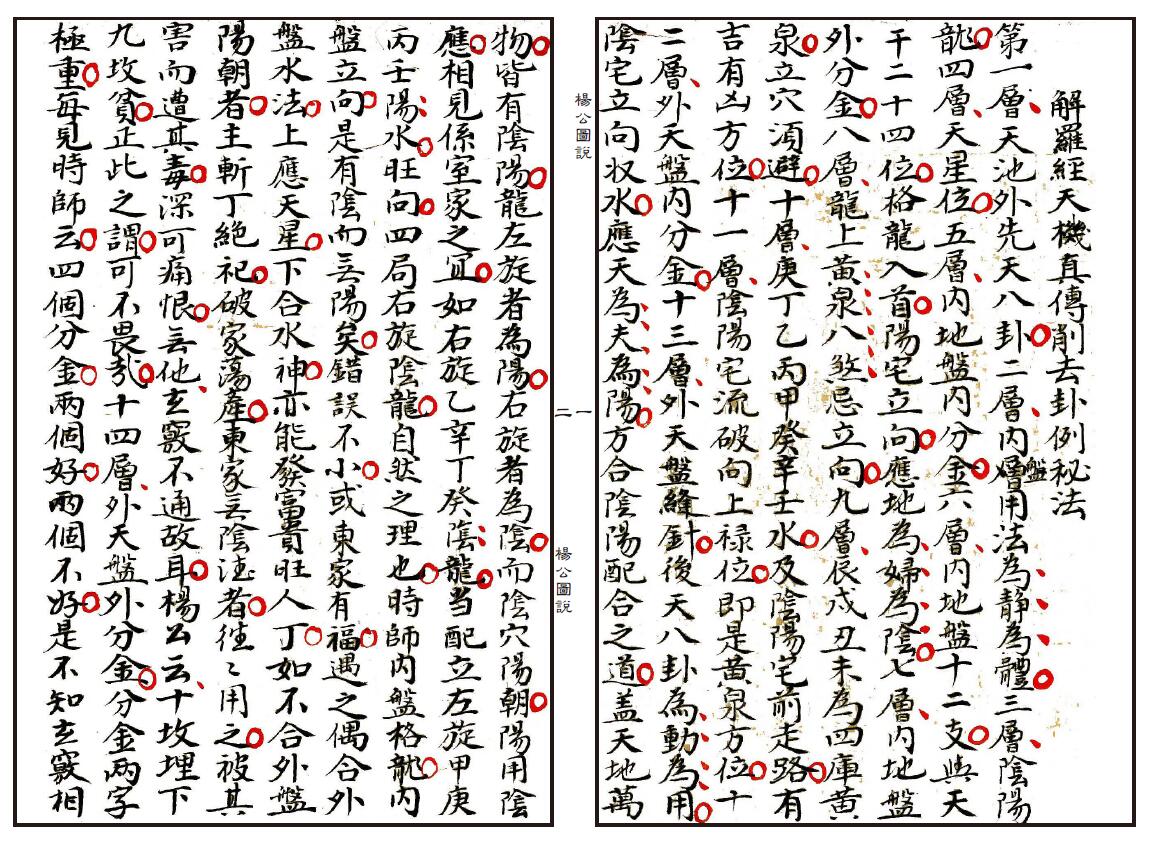 解羅經天機真傳削去卦例秘法
第一層天池外先天八卦二層內層盤用法為静為體三層陰陽
龍四層天星位五層內地盤內分金六層內地盤十二支與天
干二十四位格龍入首陽宅立向應地為婦為陰七層內地盤
外分金八層龍上黃泉八煞忌立向九層辰戍丑未為四庫黃
泉立穴須避十層庚丁乙丙甲癸辛壬水及陰陽宅前走路有
吉有凶方位十一層陰陽宅流破向上禄位即是黃泉方位十
二層外天盤內分金十三層外天盤縫針後天八卦為動為用
陰宅立向収水應天為夫為陽方合陰陽配合之道盖天地萬
楊公圖説
一
二
楊公圖説
物皆有陰陽龍左旋者為陽右旋者為陰而陰穴陽朝陽用陰
應相見係室家之冝如右旋乙辛丁癸陰龍当配立左旋甲庚
丙壬陽水旺向四局右旋陰龍自然之理也時師內盤格龍內
盤立向是有陰而无陽矣錯誤不小或東家有福遇之偶合外
盤水法上應天星下合水神亦能發富貴旺人丁如不合外盤
陽朝者主斬丁絕祀破家蕩產東家无陰德者徃〻用之被其
害而遭其毒深可痛恨无他玄竅不通故耳楊公云十坟埋下
九坟貧正此之謂可不畏哉十四層外天盤外分金分金两字
極重每見時師云四個分金兩個好兩個不好是不知玄竅相